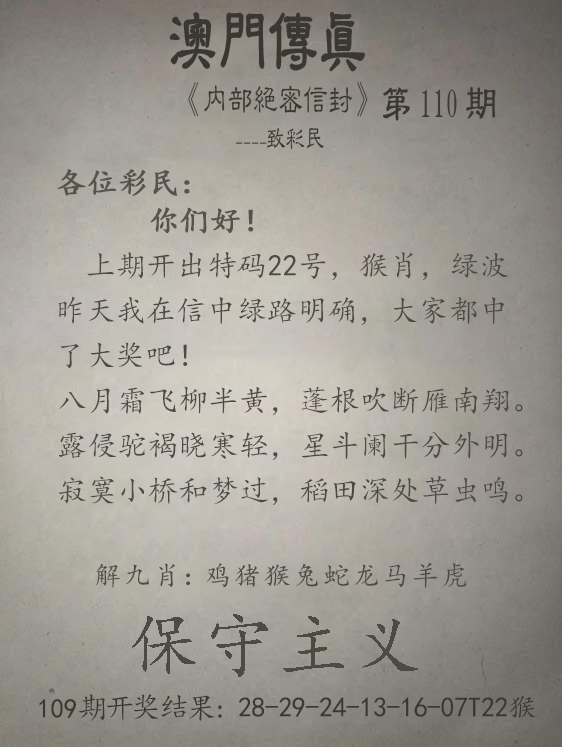 澳門傳眞
《内部絕密信封》第110期
----致彩民
各位彩民：
你们好！
上期开出特码22号，猴肖，绿波
昨天我在信中绿路明确，大家都中
了大奖吧！
八月霜飞柳半黄，蓬根吹断雁南翔。
露侵驼褐晓寒轻，星斗阑干分外明。
寂寞小桥和梦过，稻田深处草虫鸣。
解九肖：鸡猪猴兔蛇龙马羊虎
保守主义
109期开奖结果：28-29-24-13-16-07T22猴